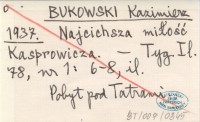 BUKOWSKI Kazimierz
1937. Najcichsza miłość
Kasprowicza. — Tyg. Il.
78, nr 1: 6-8, il.
Pobyt pod Tatrami
BJ/009/0345